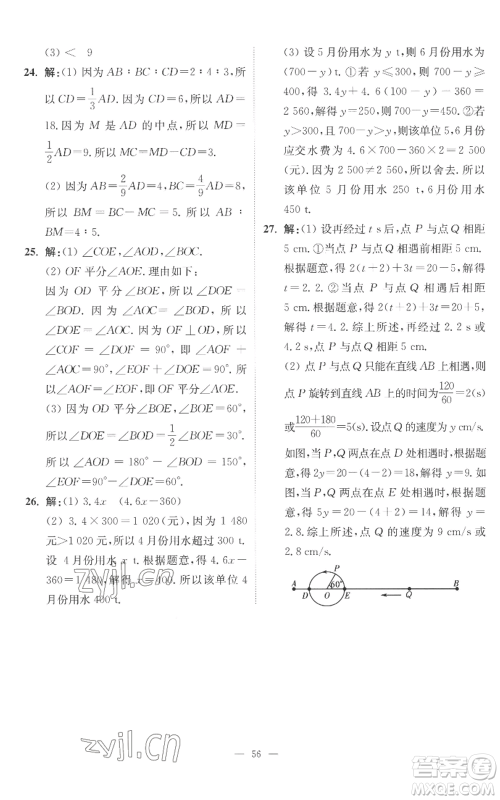 (3) < 9
24. 解:(1) 因为 AB∶BC∶CD=2∶4∶3,所
以 CD=1/3 AD. 因为 CD=6,所以 AD=
18. 因为 M 是 AD 的中点,所以 MD=
1/2 AD=9. 所以 MC=MD-CD=3.
(2) 因为 AB=2/9 AD=4, BC=4/9 AD=8,
所以 BM=AM-AB=9-4=5. 所以
AB∶BM=4∶5.
25. 解:(1) ∠COE,∠AOD,∠BOC.
(2) OF 平分∠AOE. 理由如下:
因为 OD 平分∠BOE,所以∠BOD=
∠DOE=∠AOC. 因为 OF⊥OD,所以
∠COF=∠DOF=90°,所以∠AOC+
∠AOF=90°,∠EOF+∠DOE=90°.
所以∠AOF=∠EOF,即OF平分∠AOE.
(3) 因为 OD 平分∠BOE,∠BOE=60°,
所以∠DOE=∠BOD=1/2∠BOE=30°.
所以∠AOD=180°-∠BOD=150°,
∠EOF=90°-∠DOE=60°.
26. 解:(1) 3.4x (4.6x-360)
(2) 3.4×300=1 020(元),因为 1 480
元>1 020 元,所以4月份用水超过300 t.
设 4 月份用水 x t. 根据题意,得 4.6x-
360=1 480,解得 x=400. 所以该单位 4
月份用水 400 t.
(3) 设 5 月份用水为 y t,则 6 月份用水为
(700-y) t. ① 若 y≤300,则 700-y≥
400. 3.4y+4.6(700-y)-360=
2 560,解得 y=250,则 700-y=450. ② 若
y>300,由题意,得 700-y>y,则6月份
应交水费为 4.6×700-360×2=2 500
(元). 因为 2 500≠2 560,所以舍去. 所以
该单位 5 月份用水 250 t,6 月份用水
450 t.
27. 解:(1) 设再经过 t s 后,点 P 与点 Q 相距
5 cm. ① 当点 P 与点 Q 相遇前相距 5 cm.
根据题意,得 2(t+2)+3t=20-5,解得 t
=2.2. ② 当点 P 与点 Q 相遇后相距
5 cm. 根据题意,得 2(t+2)+3t=20+5,
解得 t=4.2. 综上所述,再经过 2.2 s 或
4.2 s 后,点 P 与点 Q 相距 5 cm.
(2) 因为点 P 与点 Q 只能在直线 AB 上相遇,
点 P 旋转到直线 AB 上的时间为120/60=2(s)
或(120+180)/60=5(s). 设点 Q 的速度为 y cm/s.
① 当点 P 与点 Q 在点 D 处相遇时,根据
题意,得 2y=20-(4-2),解得 y=9.
② 当点 P 与点 Q 在点 E 处相遇时,根据题
意,得 5y=20-(4+2),解得 y=2.8.
综上所述,点 Q 的速度为 9 cm/s 或
2.8 cm/s.
P
60°
A D O E Q B
— 56 —
zyjl.cn
zyjl.cn
答案圈